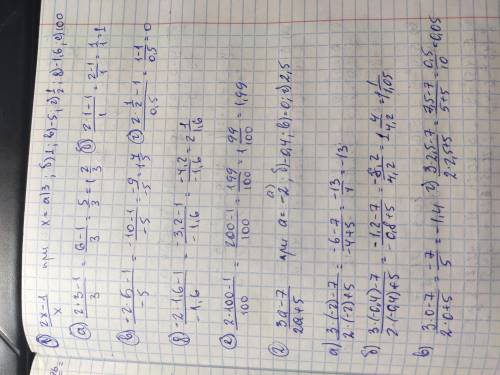 ① (2x-1)/x при x = а)3; б)1; в)-5; г)1/2; д)-1,6; е)100
а) (2·3-1)/3 = (6-1)/3 = 5/3 = 1 2/3 б) (2·1-1)/1 = (2-1)/1 = 1/1 = 1
в) (-2·5-1)/-5 = (-10-1)/-5 = г) (2·1/2-1)/0,5 = (1-1)/0,5 = 0
д) (-2·1,6-1)/-1,6 = (-3,2-1)/-1,6 = (-4,2)/-1,6 =
е) (2·100-1)/100 = (200-1)/100 = 199/100 = 1 99/100 = 1,99
② (3a-7)/(2a+5) при a = а)-2; б)-0,4; в)0; г)2,5
а) (3·(-2)-7)/(2·(-2)+5) = (-6-7)/(-4+5) = -13/1 = -13
б) (3·(-0,4)-7)/(2·(-0,4)+5) = (-1,2-7)/(-0,8+5) = -8,2/4,2 =
в) (3·0-7)/(2·0+5) = -7/5 = -1,4 г) (3·2,5-7)/(2·2,5+5) = (7,5-7)/(5+5) = 0,5/10 = 0,05